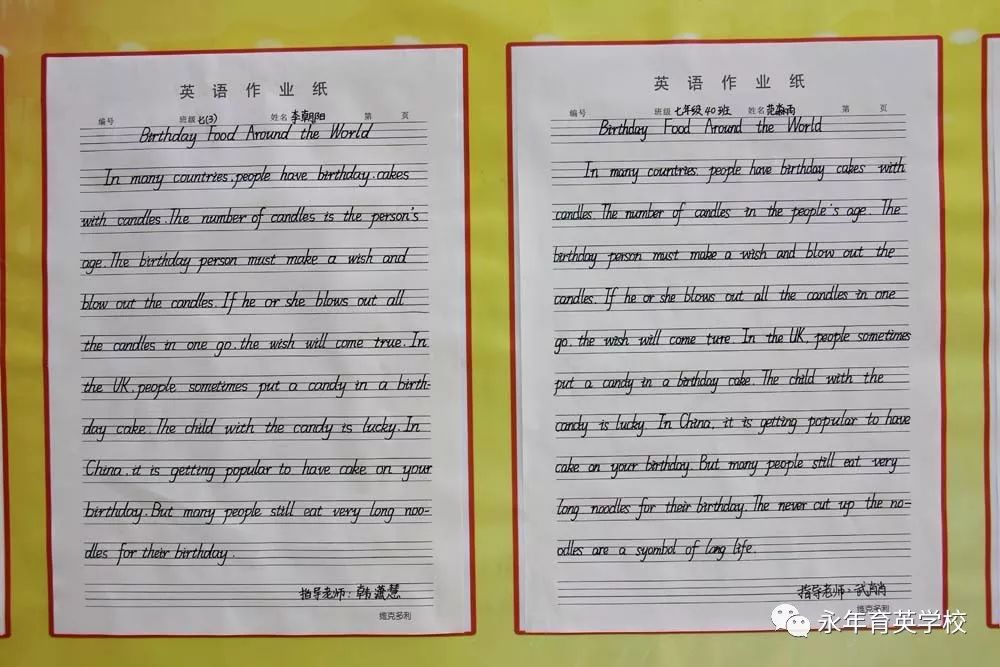 英语作业纸
编号 班级 七(3) 姓名 李朝阳 第 页
Birthday Food Around the World
In many countries,people have birthday cakes
with candles.The number of candles is the person's
age.The birthday person must make a wish and
blow out the candles.If he or she blows out all
the candles in one go.the wish will come true.In
the UK,people sometimes put a candy in a birth-
day cake.The child with the candy is lucky.In
China,it is getting popular to have cake on your
birthday.But many people still eat very long noo-
dles for their birthday.
指导老师:韩潇慧
维克多利
英语作业纸
编号 班级 七年级40班 姓名 范淼雨 第 页
Birthday Food Around the World
In many countries, people have birthday cakes with
candles.The number of candles in the people's age. The
birthday person must make a wish and blow out the
candles. If he or she blows out all the candles in one
go, the wish will come ture. In the UK, people sometimes
put a candy in a birthday cake. The child with the
candy is lucky. In China, it is getting popular to have
cake on your birthday. But many people still eat very
long noodles for their birthday. The never cut up the no-
odles are a syombol of long life.
指导老师:武肖肖
维克多利
永年育英学校